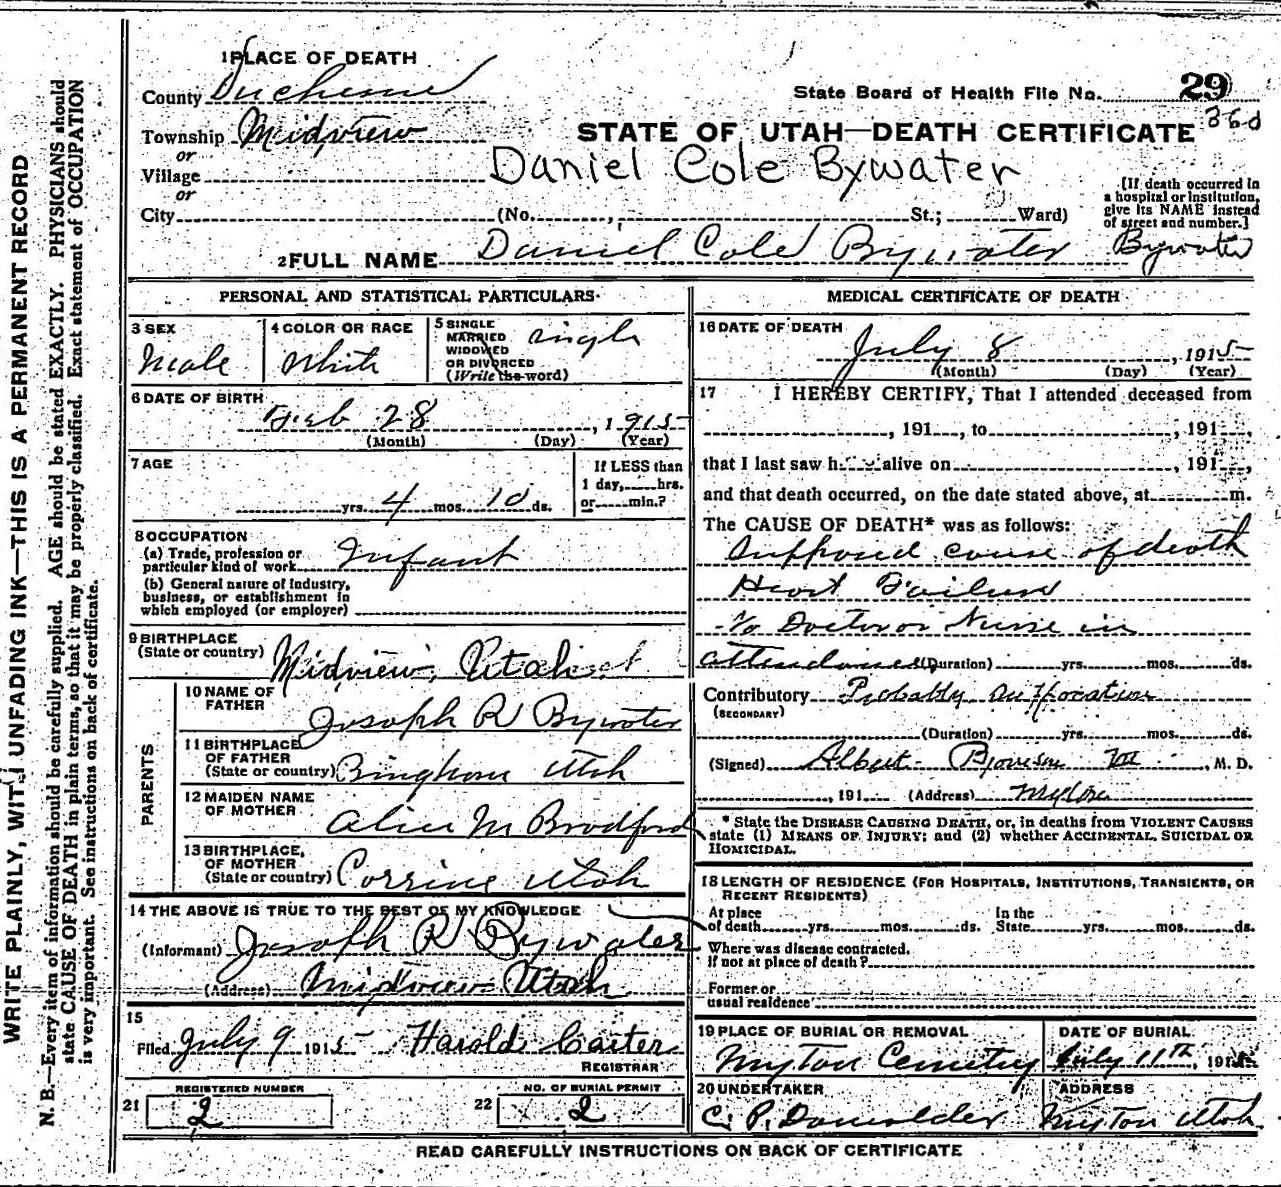 WRITE PLAINLY, WITH UNFADING INK—THIS IS A PERMANENT RECORD
N. B.—Every item of information should be carefully supplied. AGE should be stated EXACTLY. PHYSICIANS should
state CAUSE OF DEATH in plain terms, so that it may be properly classified. Exact statement of OCCUPATION
is very important. See instructions on back of certificate.
1 PLACE OF DEATH
County Duchesne
State Board of Health File No. 29
Township Midview
STATE OF UTAH—DEATH CERTIFICATE 360
or
Village
Daniel Cole Bywater
or
City (No. , St.; Ward)
[If death occurred in
a hospital or institution,
give its NAME instead
of street and number.]
2 FULL NAME Daniel Cole Bywater Bywater
PERSONAL AND STATISTICAL PARTICULARS
3 SEX
Male
4 COLOR OR RACE
White
5 SINGLE
MARRIED
WIDOWED
OR DIVORCED
(Write the word)
single
6 DATE OF BIRTH
Feb 28, 1915
(Month) (Day) (Year)
7 AGE
yrs. 4 mos. 10 ds.
If LESS than
1 day, hrs.
or min.?
8 OCCUPATION
(a) Trade, profession or
particular kind of work Infant
(b) General nature of industry,
business, or establishment in
which employed (or employer)
9 BIRTHPLACE
(State or country) Midview, Utah
PARENTS
10 NAME OF
FATHER Joseph R Bywater
11 BIRTHPLACE
OF FATHER
(State or country) Bingham Utah
12 MAIDEN NAME
OF MOTHER Alice M Bradford
13 BIRTHPLACE,
OF MOTHER
(State or country) Corrine Utah
14 THE ABOVE IS TRUE TO THE BEST OF MY KNOWLEDGE
(Informant) Joseph R Bywater
(Address) Midview Utah
15
Filed July 9 1915 Harold Carter
REGISTRAR
REGISTERED NUMBER
21 2
NO. OF BURIAL PERMIT
22 2
MEDICAL CERTIFICATE OF DEATH
16 DATE OF DEATH
July 8, 1915
(Month) (Day) (Year)
17 I HEREBY CERTIFY, That I attended deceased from
, 191 , to , 191 ,
that I last saw h alive on , 191 ,
and that death occurred, on the date stated above, at m.
The CAUSE OF DEATH* was as follows:
Supposed cause of death
Heart Failure
No Doctor or Nurse in
attendance (Duration) yrs. mos. ds.
Contributory Probably suffocation
(SECONDARY)
(Duration) yrs. mos. ds.
(Signed) Albert , M. D.
, 191 (Address) Myton
* State the DISEASE CAUSING DEATH, or, in deaths from VIOLENT CAUSES
state (1) MEANS OF INJURY; and (2) whether ACCIDENTAL, SUICIDAL OR
HOMICIDAL.
18 LENGTH OF RESIDENCE (FOR HOSPITALS, INSTITUTIONS, TRANSIENTS, OR
RECENT RESIDENTS)
At place
of death yrs. mos. ds.
In the
State yrs. mos. ds.
Where was disease contracted,
if not at place of death?
Former or
usual residence
19 PLACE OF BURIAL OR REMOVAL
Myton Cemetry
DATE OF BURIAL
July 11th, 1915
20 UNDERTAKER
C. P.
ADDRESS
Myton Utah.
READ CAREFULLY INSTRUCTIONS ON BACK OF CERTIFICATE